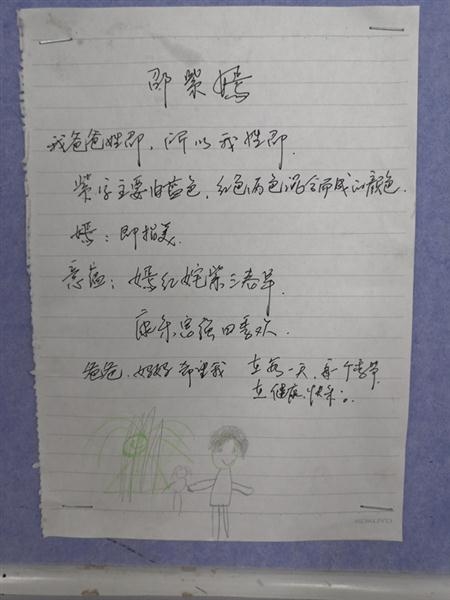 邵紫嫣
我爸爸姓邵，所以我姓邵.
紫字主要由蓝色，红色两色混合而成的颜色.
嫣：即指美.
意蕴：嫣红姹紫三春早.
康乐富强四季欢.
爸爸、妈妈希望我 在每一天，每个季节
在健康、快乐。
KOKUYO